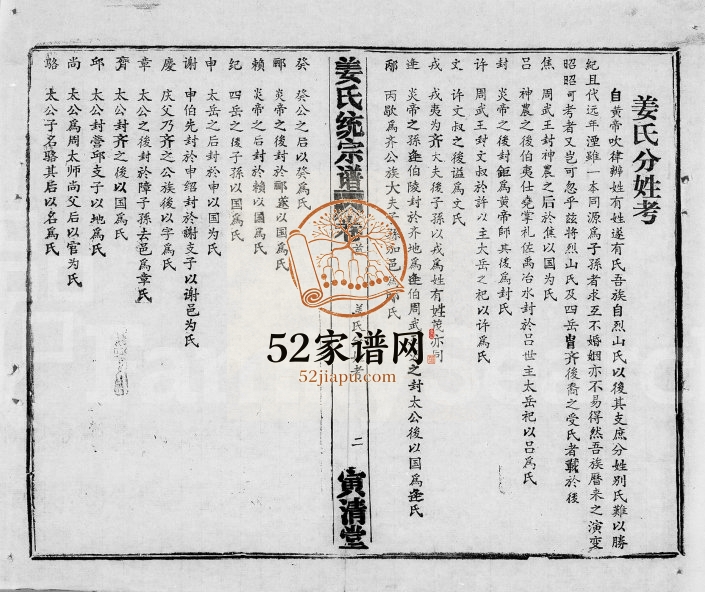 姜氏分姓考
自黄帝吹律辨姓有姓遂有氏吾族自烈山氏以後其支庶分姓别氏難以勝
紀且代远年湮雖一本同源為子孫者求互不婚姻亦不易得然吾族曆来之演变
昭昭可考者又岂可忽乎兹將烈山氏及四岳胄齐後裔之受氏者載於後
焦 周武王封神農之后於焦以国为氏
吕 神農之後伯夷仕尧掌礼佐禹治水封於吕世主太岳祀以吕爲氏
封 炎帝之後封鉅爲黄帝師其後爲封氏
许 周武王封文叔於许以主太岳之祀以许爲氏
文 许文叔之後谥爲文氏
戎 戎夷为齐大夫後子孫以戎爲姓有姓莪亦同
逄 炎帝之孫逄伯陵封於齐地爲逄伯周武之封太公後以国爲逄氏
邴 丙歜爲齐公族大夫子孫加邑氏
姜氏统宗谱
姜氏
考
二
寅清堂
癸 癸公之后以癸爲氏
郮 炎帝之後封於郮遂以國爲氏
赖 炎帝之后封於赖以國爲氏
紀 四岳之後子孫以国爲氏
申 太岳之后封於申以国为氏
谢 申伯先封於申绍封於谢支子以谢邑为氏
慶 庆父乃齐之公族後以字爲氏
章 太公之後封於障子孫去邑爲章氏
齊 太公封齐之後以国爲氏
邱 太公封营邱支子以地爲氏
尚 太公爲周太师尚父后以官为氏
駱 太公子名駱其后以名爲氏
52家谱网
52jiapu.com